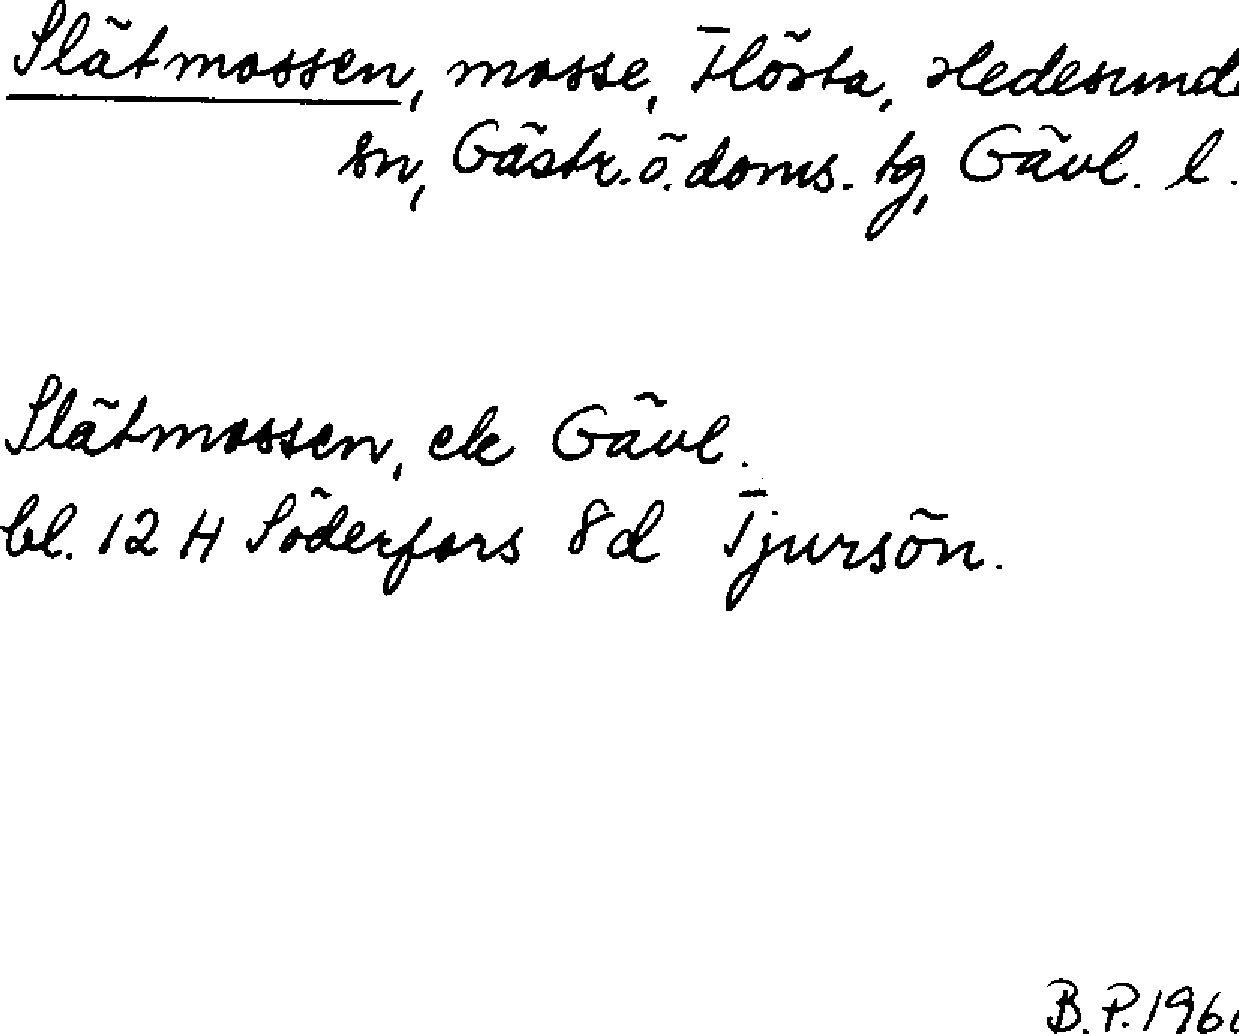 Slätmossen, mosse, Flösta, Hedesunda
sn, Gästr. ö. doms. tg, Gävl. l.
Slätmossen, ek Gävl.
bl. 12 H Söderfors 8d Tjursön.
B. P. 196